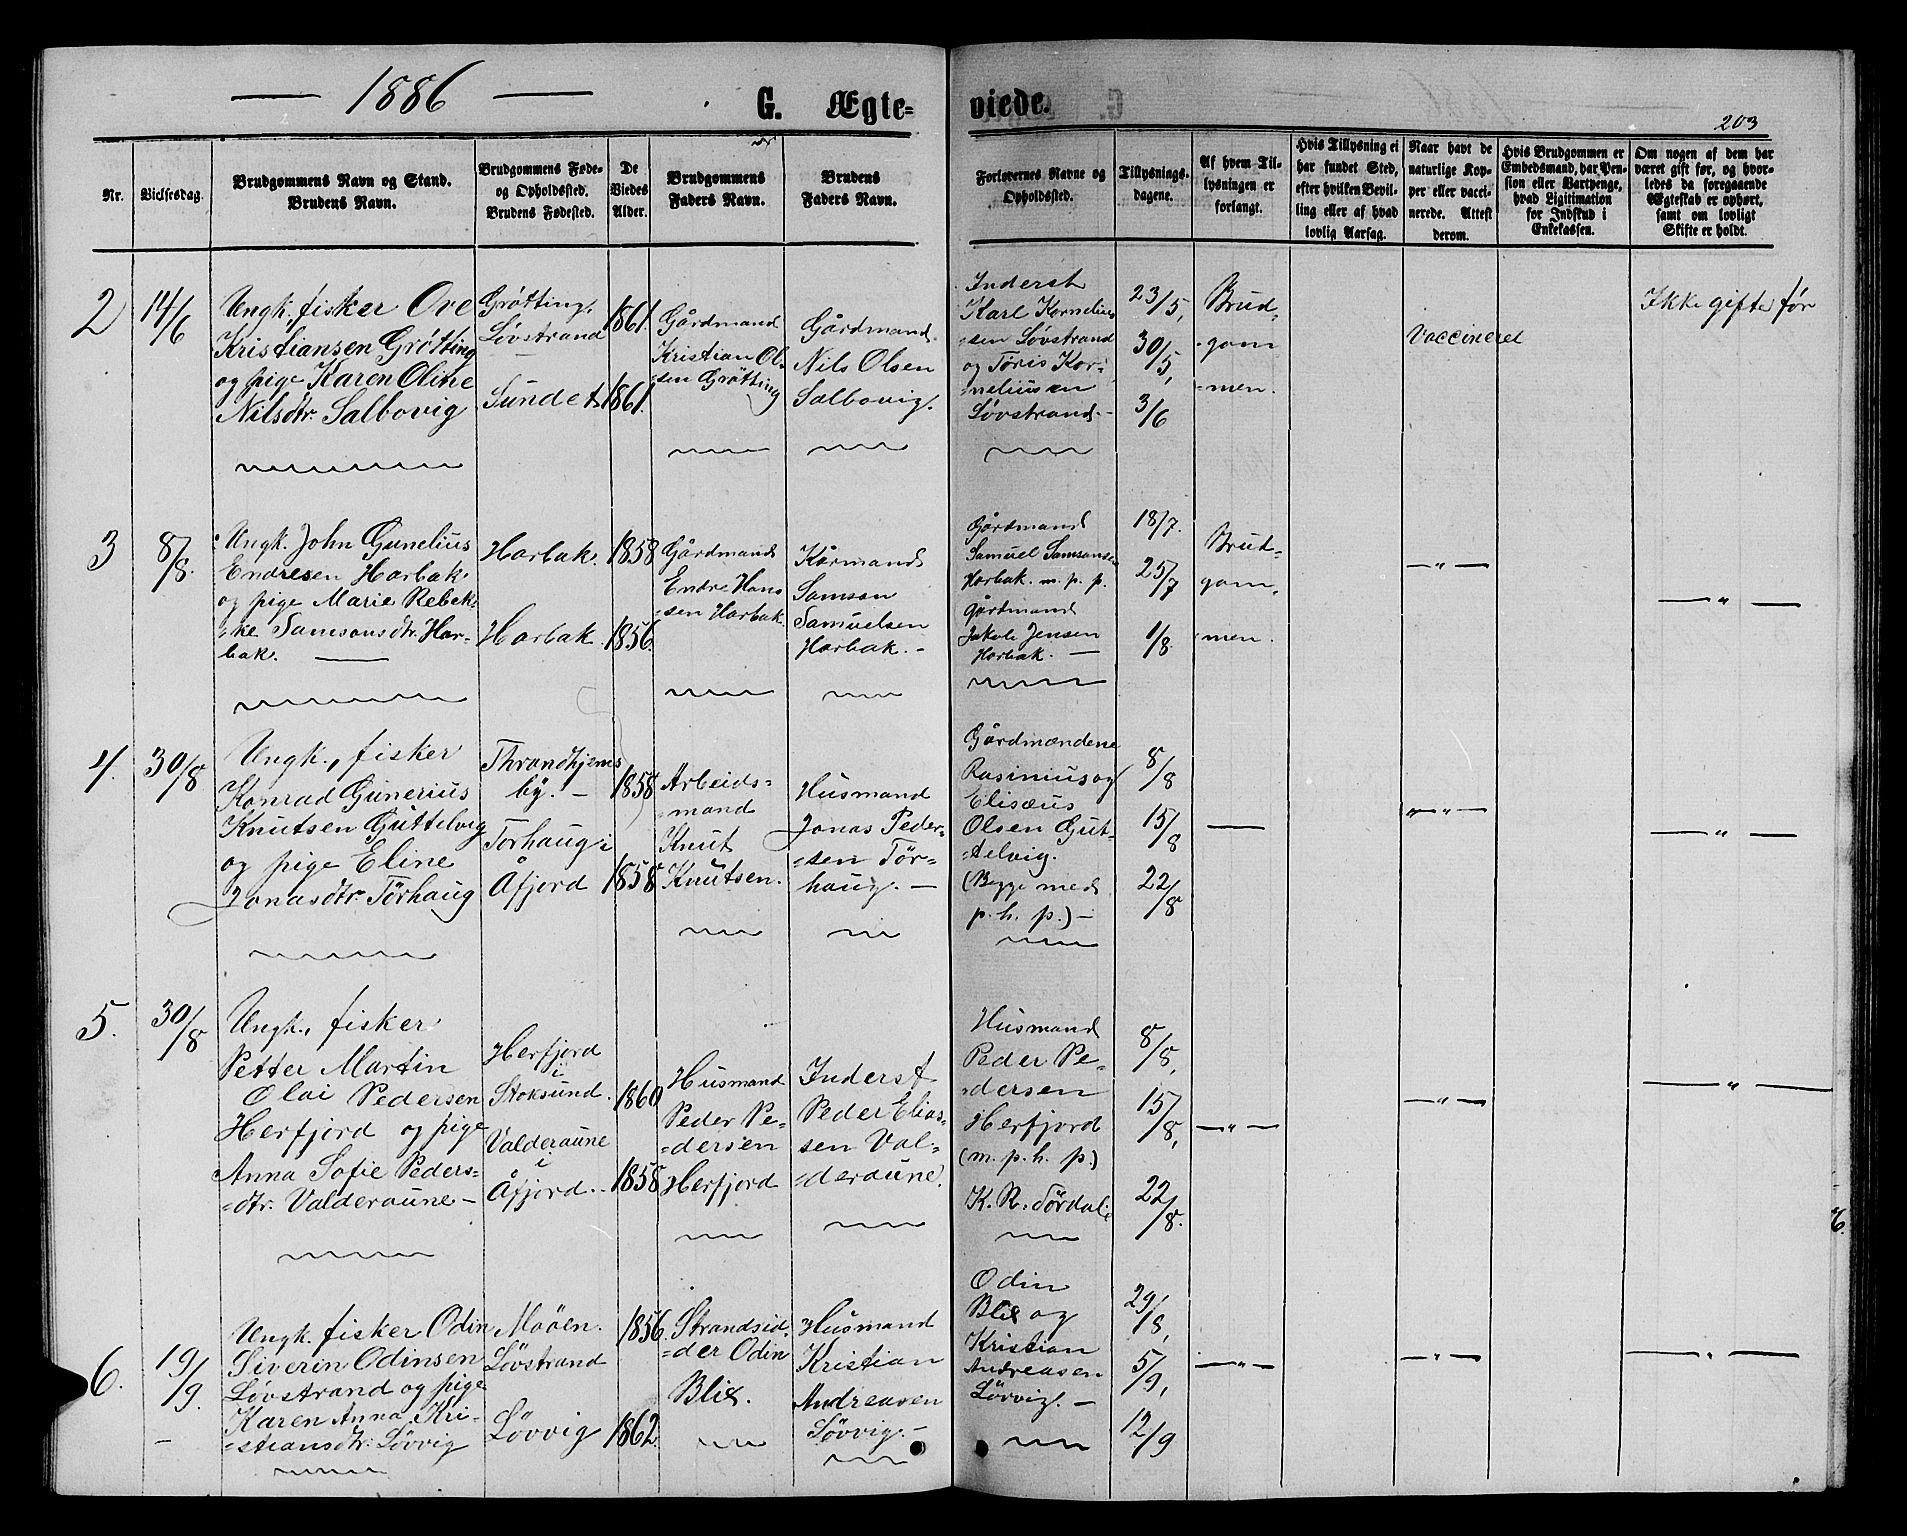 1886
G. Ægte=
viede.
203
Nr.
Vielsesdag.
Brudgommens Navn og Stand.
Brudens Navn.
Brudgommens Føde=
og Opholdssted.
Brudens Fødested.
De
Viedes
Alder.
Brudgommens
Faders Navn.
Brudens
Faders Navn.
Forlovernes Navne og
Opholdssted.
Tillysnings=
dagene.
Af hvem Til=
lysningen er
forlangt.
Hvis Tillysning ei
har fundet Sted,
efter hvilken Bevil=
ling eller af hvad
lovlig Aarsag.
Naar havt de
naturlige Kop=
per eller vacci=
nerede. Attest
derom.
Hvis Brudgommen er
Embedsmand, har Pen=
sion eller Vartpenge,
hvad Ligitimation
for Indskud i
Enkekassen.
Om nogen af dem har
været gift før, og hvor=
ledes da foregaaende
Ægteskab er ophørt,
samt om lovligt
Skifte er holdt.
2
14/6
Ungk. fisker Ove
Kristiansen Grøtting
og pige Karen Oline
Nilsdtr. Salbovig
Grøtting,
Løvstrand
Sundet
1861.
1861.
Gårdmand
Kristian Ol=
=sen Grøtting
Gårdmand
Nils Olsen
Salbovig.
Inderst
Karl Kornelius
=sen Løvstrand
og Tøris Kor=
=neliusen
Løvstrand.-
23/5,
30/5,
3/6
Brud=
=gom
=men.
Vaccineret
Ikke gifte før
3
8/8.
Ungk. John Gunelius
Endresen Harbak
og pige Marie Rebek=
=ke Samsonsdtr. Har=
bak.
Harbak.
Harbak.
1858
1856.
Gårdmand
Endre Hans
=sen Harbak.
Kårmand
Samson
Samuelsen
Harbak.-
Gårdmand
Samuel Samsonsen
Harbak. m. p. p.
gårdmand
Jakob Jensen
Harbak.-
18/7.
25/7
1/8.
Brud=
gom=
=men.
-"-
-"-
4.
30/8
Ungk., fisker
Konrad Gunerius
Knutsen Guttelvig
og pige Eline
Jonasdtr. Tørhaug
Throndhjems
by.-
Tørhaug i
Åfjord
1858
1858
Arbeids=
=mand
Knut
Knutsen.
Husmand
Jonas Peder=
=sen Tør=
haug.-
Gårdmændene
Rasinius og
Elisæus
Olsen Gut=
=telvig.
(Begge med
p. h. p.)-
8/8
15/8
22/8
-"-
-"-
5.
30/8
Ungk., fisker
Petter Martin
Olai Pedersen
Herfjord og pige
Anna Sofie Peders=
=dtr. Valderaune-
Herfjord
i
Stoksund.
Valderaune
i
Åfjord.-
1860
1858
Husmand
Peder Pe=
=dersen
Herfjord
Inderst
Peder Elias=
sen Val=
=deraune.
Husmand
Peder Pe=
=dersen
Herfjord
(m. p. h. p.)
K. R. Tørdal
8/8,
15/8,
22/8.
-"-
-"-
-"-
6.
19/9.
Ungk. fisker Odin
Siverin Odinsen
Løvstrand og pige
Karen Anna Kri=
=stiansdtr. Løvvig
Moöen.
Løvstrand
Løvvig
1856.
1862.
Strandsid=
=der Odin
Blix.
Husmand
Kristian
Andreasen
Løvvig.-
Odin
Blix og
Kristian
Andreasen
Løvvig.-
29/8,
5/9,
12/9
-"-
-"-
-"-